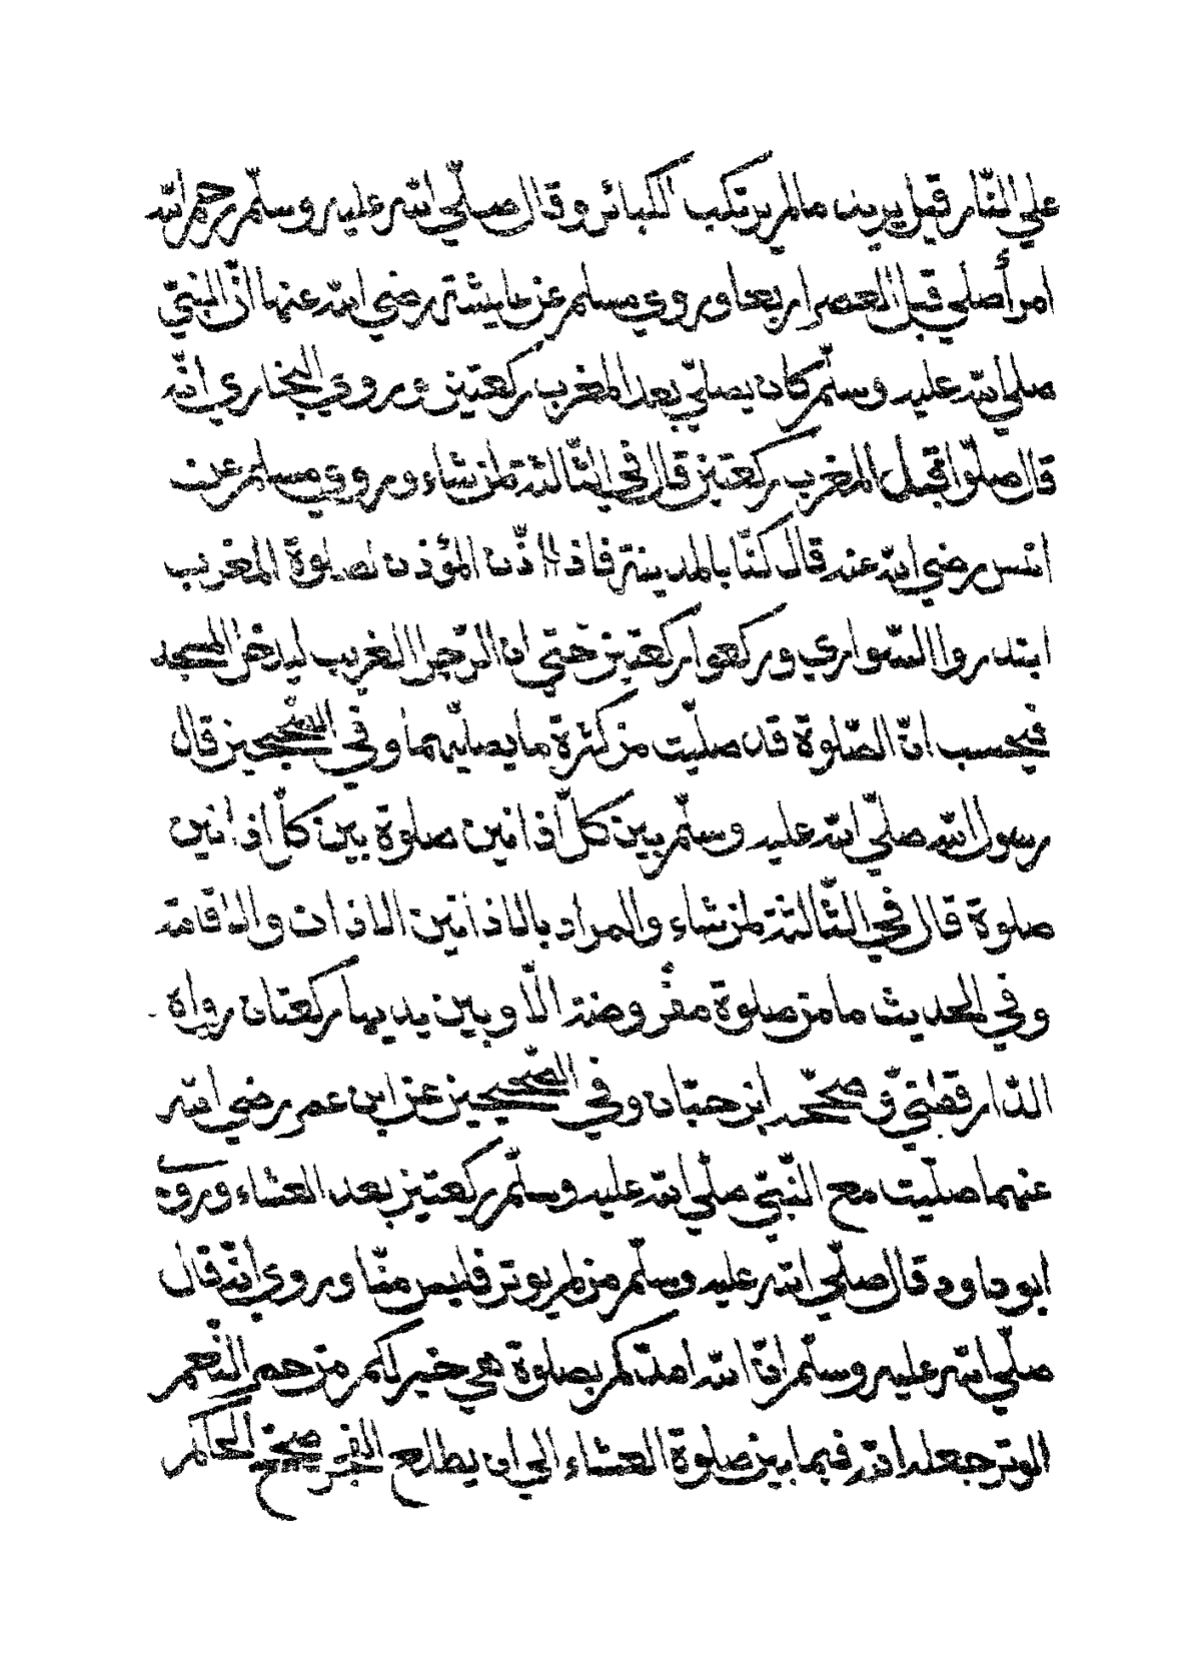 على النّار قيل يريد مالم يرتكب الكبائر وقال صلّى الله عليه وسلّم رحم الله
امرأ صلى قبل العصر اربعا وروي مسلم عن عايشة رضي الله عنها انّ النبيّ
صلى الله عليه وسلّم كان يصلّي بعد المغرب ركعتين وروي البخاري انّه
قال صلّوا قبل المغرب ركعتين قال في الثّالثة لمن شاء وروي مسلم عن
انس رضي الله عنه قال كنّا بالمدينة فاذا اذّن المؤذن لصلوة المغرب
ابتدروا السّواري وركعوا ركعتين حتي ان الرّجل الغريب ليدخل المسجد
فيحسب انّ الصّلوة قد صلّيت من كثرة ما يصلّيهما وفي الصّحيحين قال
رسول الله صلّى الله عليه وسلّم بين كلّ اذانين صلوة بين كلّ اذانين
صلوة قال في الثّالثة لمن شاء والمراد بالاذانين الاذان والاقامة
وفي الحديث ما من صلوة مفروضة الّا وبين يديها ركعتان رواه
الدّارقطني وصحّحه ابن حبّان وفي الصّحيحين عن ابن عمر رضي الله
عنهما صلّيت مع النّبيّ صلّى الله عليه وسلّم ركعتين بعد العشاء وروي
ابو داود قال صلّى الله عليه وسلّم من لم يوتر فليس منّا وروي انّه قال
صلّى الله عليه وسلّم انّ الله امدّكم بصلوة هي خير لكم من حمر النّعم
الوتر جعله الله فيما بين صلوة العشاء الى ان يطلع الفجر صحّح الحاكم